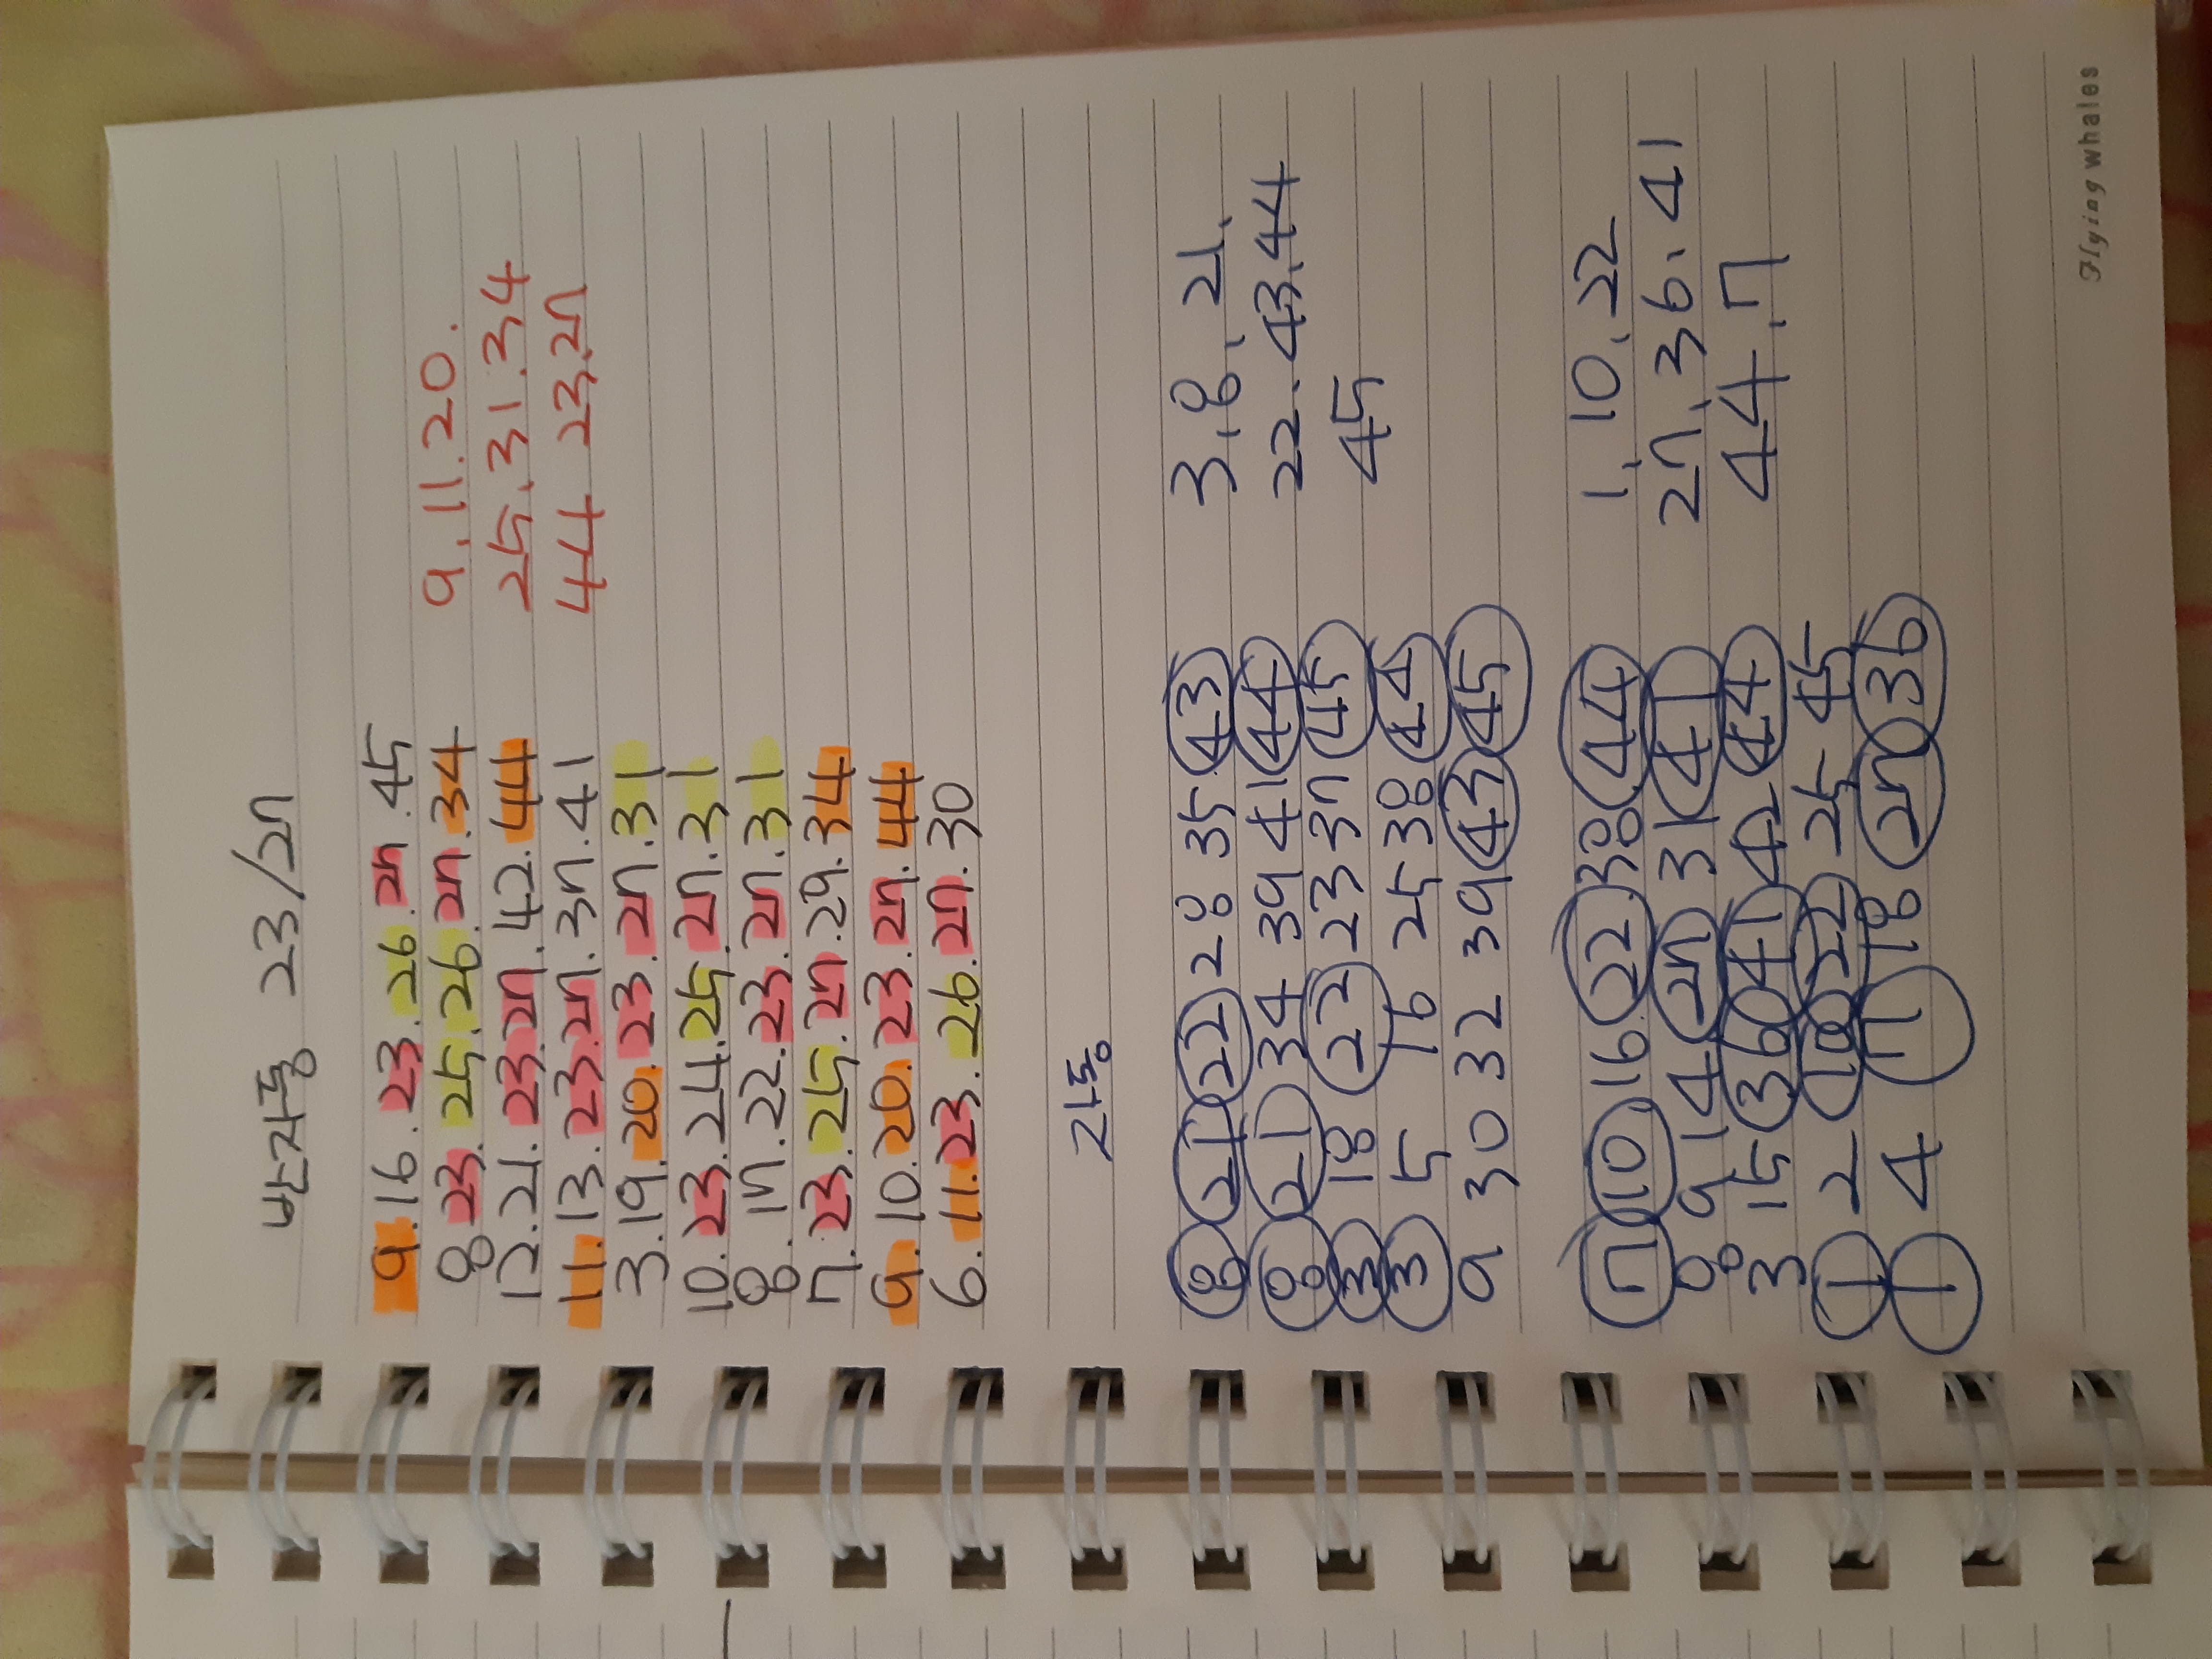 반자동 23/27
9.16.23.26.27.45
8.23.25.26.27.34
12.21.23.27.42.44
11.13.23.27.37.41
3.19.20.23.27.31
10.23.24.25.27.31
8.17.22.23.27.31
7.23.25.27.29.34
9.10.20.23.27.44
6.11.23.26.27.30
9.11.20.
25.31.34
44 23.27
자동
8 21 22 28 35 43
8 21 34 39 41 44
3 18 22 23 37 45
3 5 16 25 38 44
9 30 32 39 43 45
3.8.21.
22.43.44
45
7 10 16 22 38 44
8 9 14 27 31 41
3 15 36 41 42 44
1 2 10 22 25 45
1 4 7 18 27 36
1, 10, 22
27, 36, 41
44, 7
Flying whales